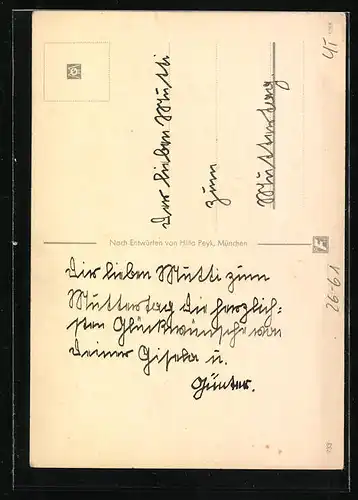 Der lieben Mutti
zum
Muttertag.
Nach Entwürfen von Hilla Peyk, München
Dir lieben Mutti zum
Muttertag die herzlich-
sten Glückwünsche von
Deiner Gisela u.
Günter.
26-61